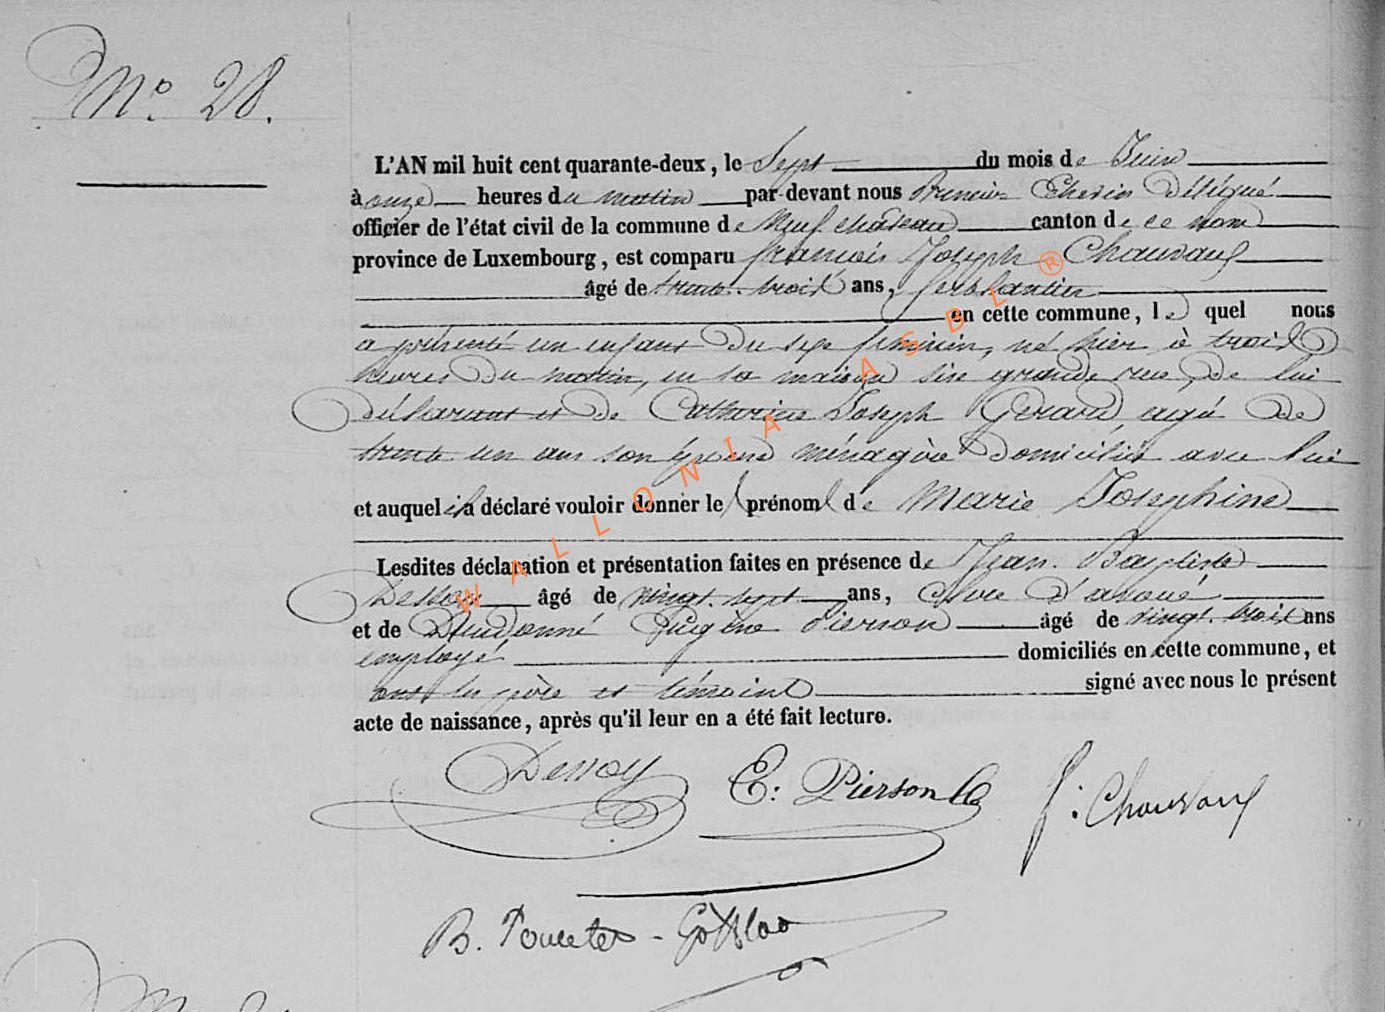 No. 28.
L'AN mil huit cent quarante-deux, le Sept du mois de Juin
à onze heures du matin par-devant nous Premier Echevin Délégué
officier de l'état civil de la commune de Neufchâteau canton de ce nom
province de Luxembourg, est comparu francois Joseph Chauvaux
âgé de trente-trois ans, ferblantier
en cette commune, le quel nous
a présenté un enfant du sexe féminin, né hier à trois
heures du matin, en sa maison sise grande rue, de lui
déclarant et de Catherine Joseph Gerard, agée de
trente un ans son épouse ménagère domiciliée avec lui
et auquel il a déclaré vouloir donner les prénoms de Marie Josephine
Lesdites déclaration et présentation faites en présence de Jean-Baptiste
Dessoy âgé de vingt-sept ans, clerc d'avoué
et de Dieudonné Eugène Pierson âgé de vingt-trois ans
employé domiciliés en cette commune, et
ont les père et témoins signé avec nous le présent
acte de naissance, après qu'il leur en a été fait lecture.
Dessoy E: Pierson f: Chauvaux
B. Poncelet -
WALLONIA ASBL ®